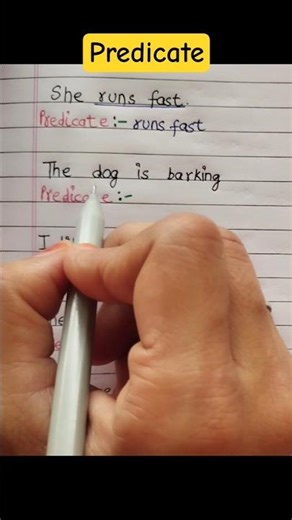 Predicate
She runs fast.
Predicate :- runs fast
The dog is barking
Predicate :-
I